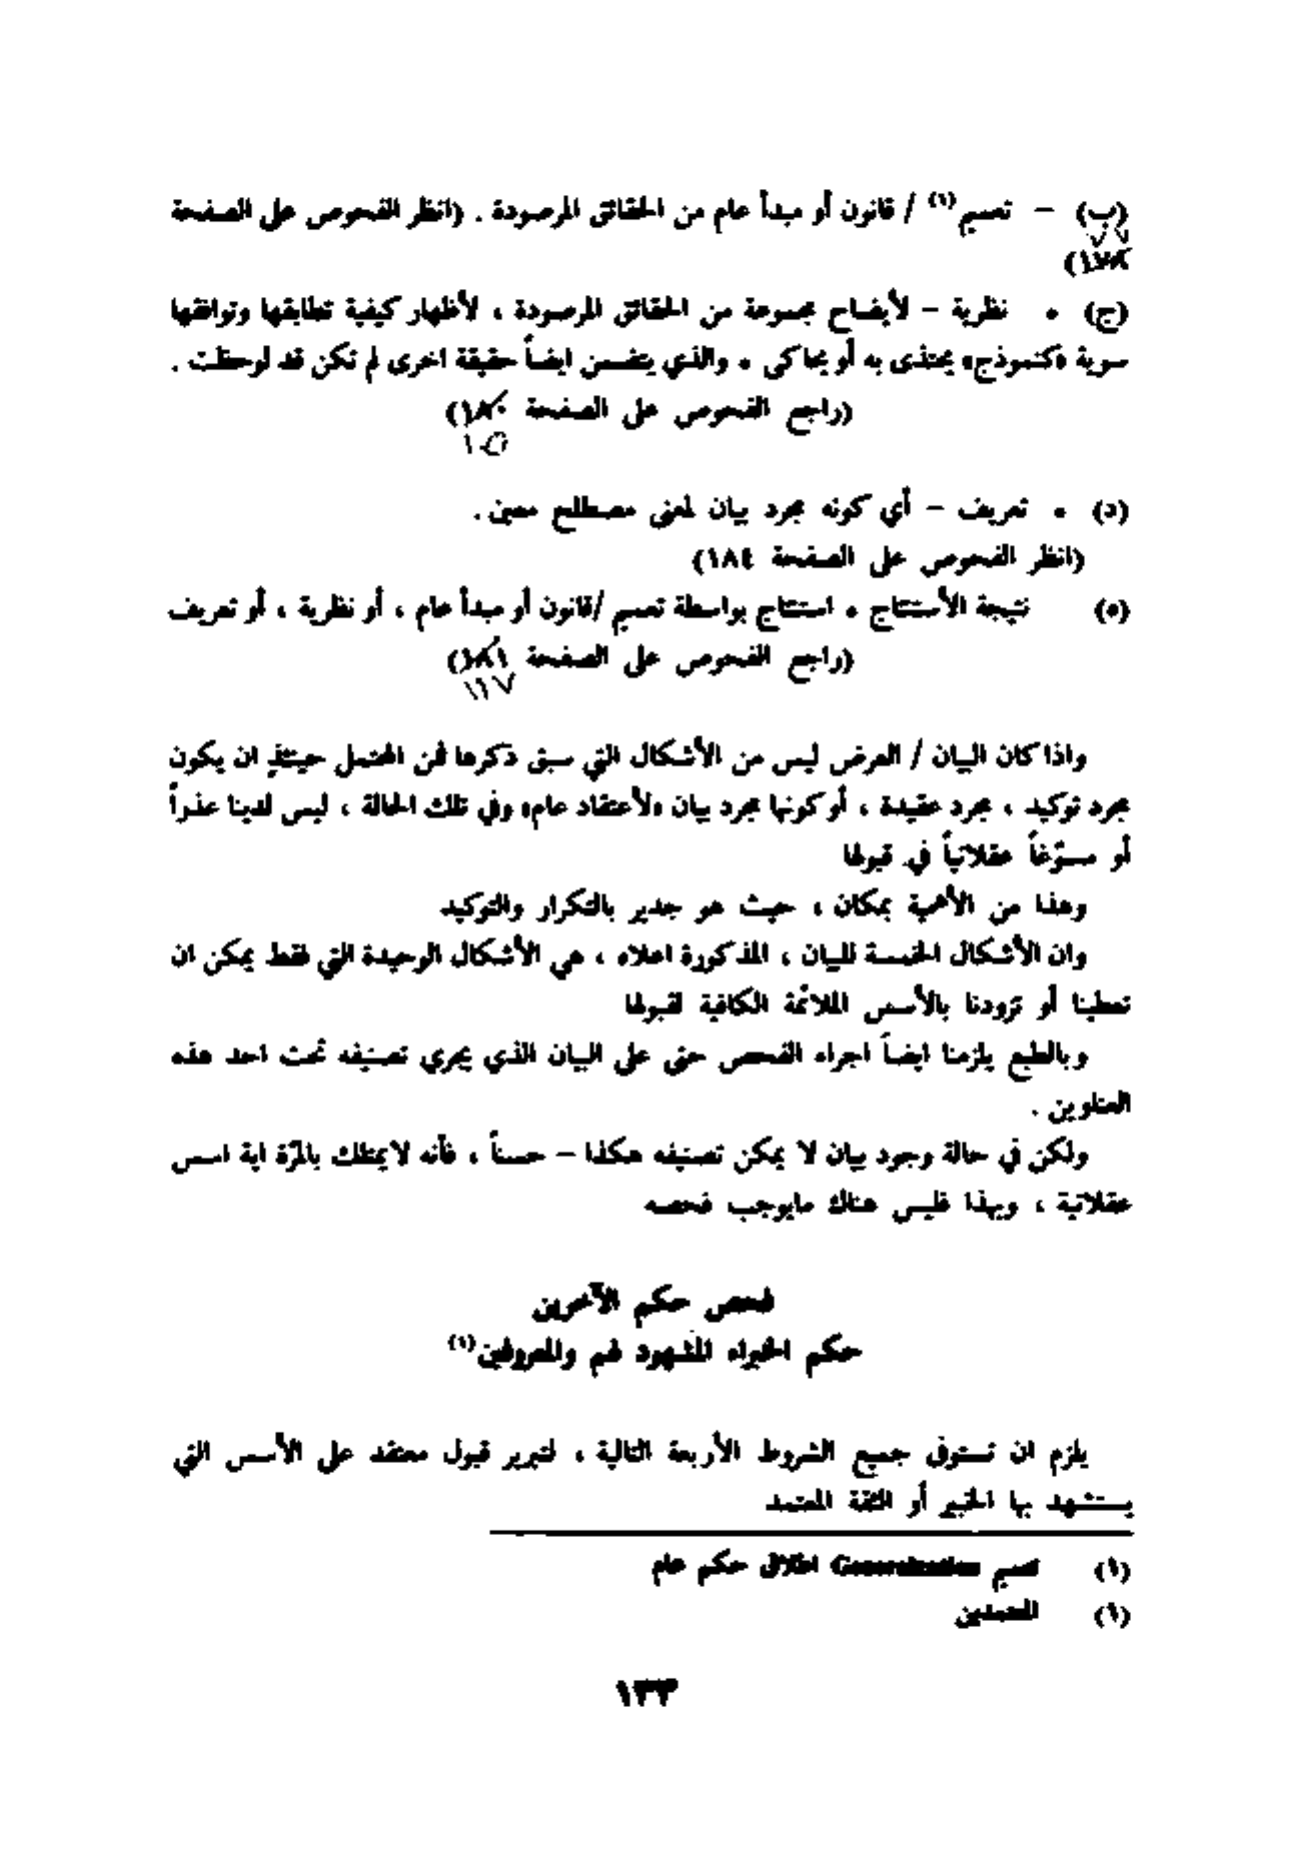 (ب) – تعميم(١) / قانون أو مبدأ عام من الحقائق المرصودة . (انظر الفحوص على الصفحة
١٧٨)
(ج) • نظرية – لأيضاح مجموعة من الحقائق المرصودة ، لأظهار كيفية تطابقها وتوافقها
سوية «كنموذج» يحتذى به أو يحاكى • والذي يتضمن ايضاً حقيقة اخرى لم تكن قد لوحظت .
(راجع الفحوص على الصفحة ١٨٠)
١٠٥
(د) • تعريف – أي كونه مجرد بيان لمعنى مصطلح معين .
(انظر الفحوص على الصفحة ١٨٤)
(ه) نتيجة الأستنتاج • استنتاج بواسطة تعميم /قانون أو مبدأ عام ، أو نظرية ، أو تعريف
(راجع الفحوص على الصفحة ١٨٦)
١١٧
واذا كان البيان / العرض ليس من الأشكال التي سبق ذكرها فمن المحتمل حينئذٍ ان يكون
مجرد توكيد ، مجرد عقيدة ، أو كونها مجرد بيان «لأعتقاد عام» وفي تلك الحالة ، ليس لدينا عذراً
أو مسوّغاً عقلانياً في قبولها
وهذا من الأهمية بمكان ، حيث هو جدير بالتكرار والتوكيد
وان الأشكال الخمسة للبيان ، المذكورة اعلاه ، هي الأشكال الوحيدة التي فقط يمكن ان
تعطينا أو تزودنا بالأسس الملائمة الكافية لقبولها
وبالطبع يلزمنا ايضاً اجراء الفحص حتى على البيان الذي يجري تصنيفه تحت احد هذه
العناوين .
ولكن في حالة وجود بيان لا يمكن تصنيفه هكذا – حسناً ، فأنه لايمتلك بالمرّة اية اسس
عقلانية ، وبهذا فليس هناك مايوجب فحصه
فحص حكم الآخرين
حكم الخبراء المشهود لهم والمعروفين(١)
يلزم ان تستوفى جميع الشروط الأربعة التالية ، لتبرير قبول معتقد على الأسس التي
يستشهد بها الخبير أو الثقة المعتمد
(١) تعميم Generalization اطلاق حكم عام
(١) المعتمدين
١٣٣